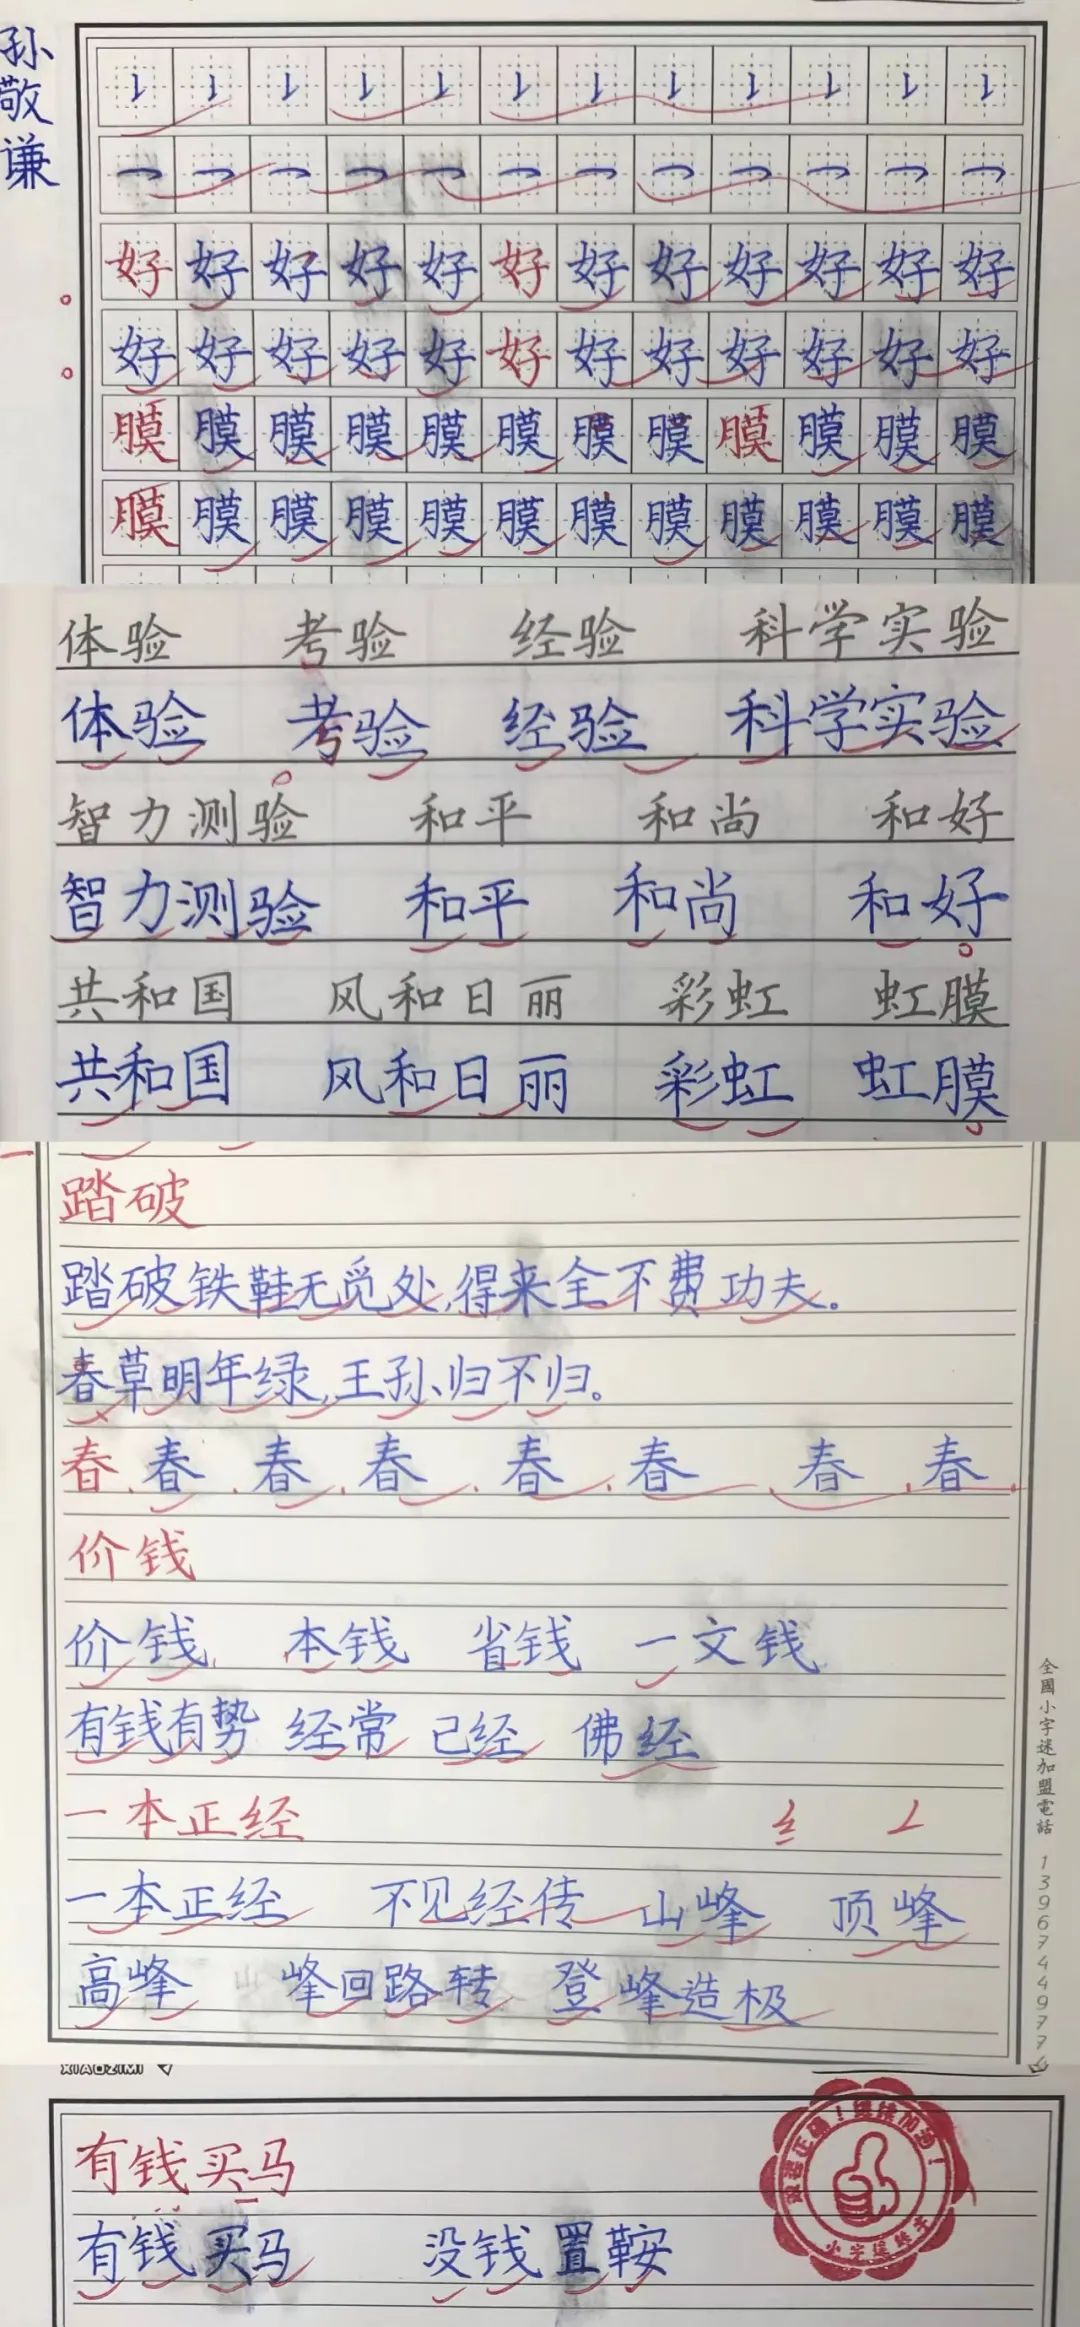 孙敬谦
好好好好好好好好好好好好
好好好好好好好好好好好好
膜膜膜膜膜膜膜膜膜膜膜膜
膜膜膜膜膜膜膜膜膜膜膜膜
体验 考验 经验 科学实验
体验 考验 经验 科学实验
智力测验 和平 和尚 和好
智力测验 和平 和尚 和好
共和国 风和日丽 彩虹 虹膜
共和国 风和日丽 彩虹 虹膜
踏破
踏破铁鞋无觅处,得来全不费功夫。
春草明年绿,王孙、归不归。
春春春春春春春春
价钱
价钱 本钱 省钱 一文钱
有钱有势 经常 已经 佛经
一本正经 纟
一本正经 不见经传 山峰 顶峰
高峰 峰回路转 登峰造极
全國小字迷加盟電話 13967449776
XIAOZIMI
有钱买马
有钱买马 没钱置鞍